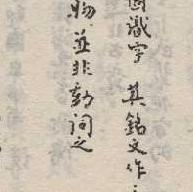 識字 其銘文作
物 並非動詞之